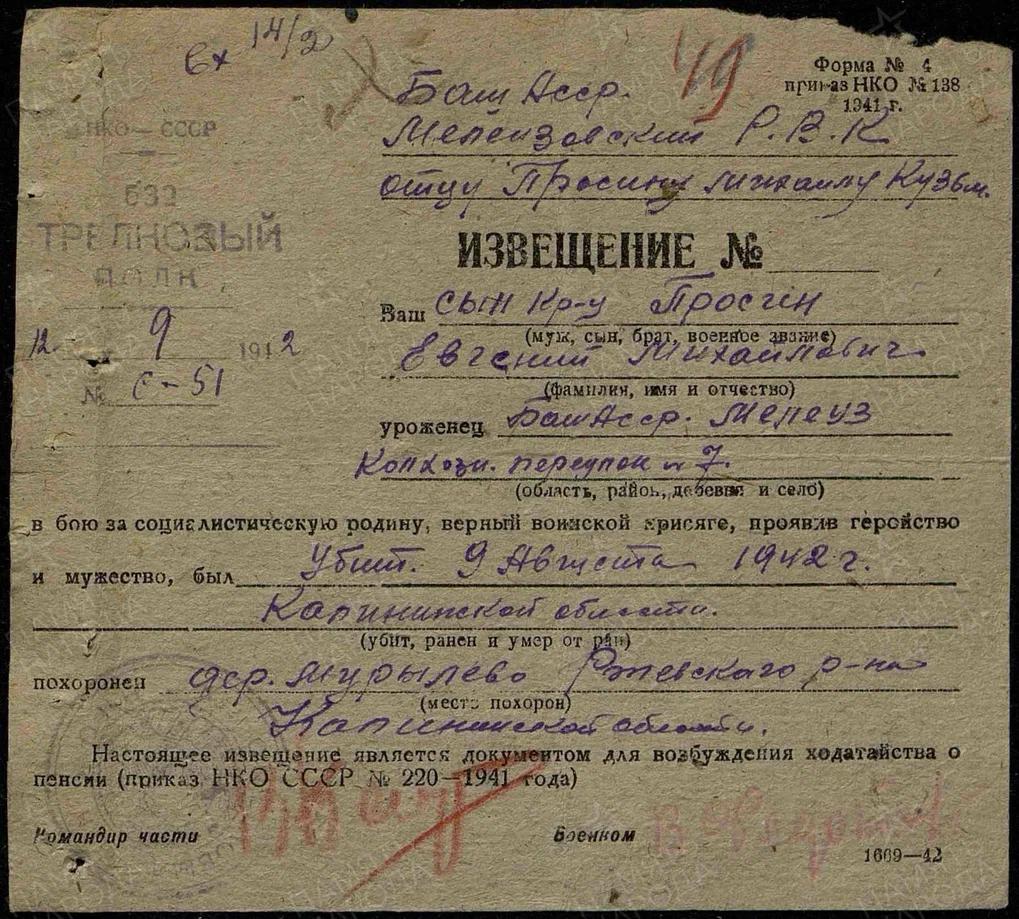 вх 14/2
49
Форма № 4
приказ НКО № 138
1941 г.
Баш Асср.
Мелеузовский Р.В.К
отцу Просину Михаилу Кузьм.
НКО — СССР
632
СТРЕЛКОВЫЙ
ПОЛК
12 9 1942
№ с-51
ИЗВЕЩЕНИЕ №
Ваш сын кр-ц Просин
(муж, сын, брат, военное звание)
Евгений Михайлович
(фамилия, имя и отчество)
уроженец БашАсср. Мелеуз
Колхозн. переулок № 7.
(область, район, деревня и село)
в бою за социалистическую родину, верный воинской присяге, проявив геройство
и мужество, был Убит. 9 Августа 1942 г.
Калининской области.
(убит, ранен и умер от ран)
похоронен дер. Мурылево Ржевского р-на
(место похорон)
Калининской области.
Настоящее извещение является документом для возбуждения ходатайства о
пенсии (приказ НКО СССР № 220—1941 года)
Командир части Военком
1669—42